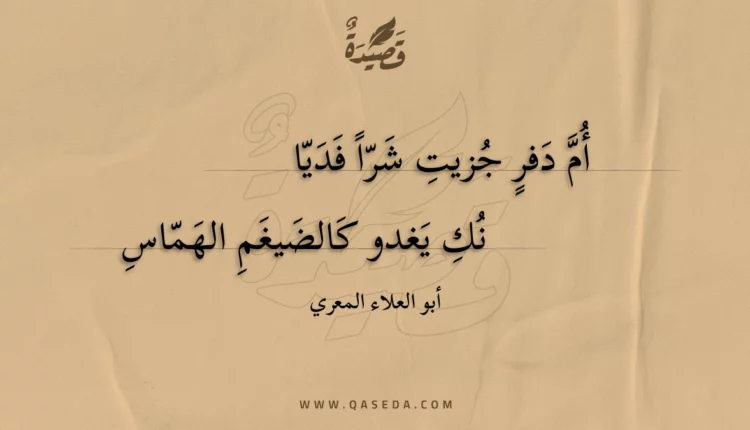 قَصِيْدَةٌ
أُمَّ دَفرٍ جُزيتِ شَرّاً فَدَيّا
نُكِ يَغدو كَالضَيغَمِ الهَمّاسِ
أبو العلاء المعري
WWW.QASEDA.COM